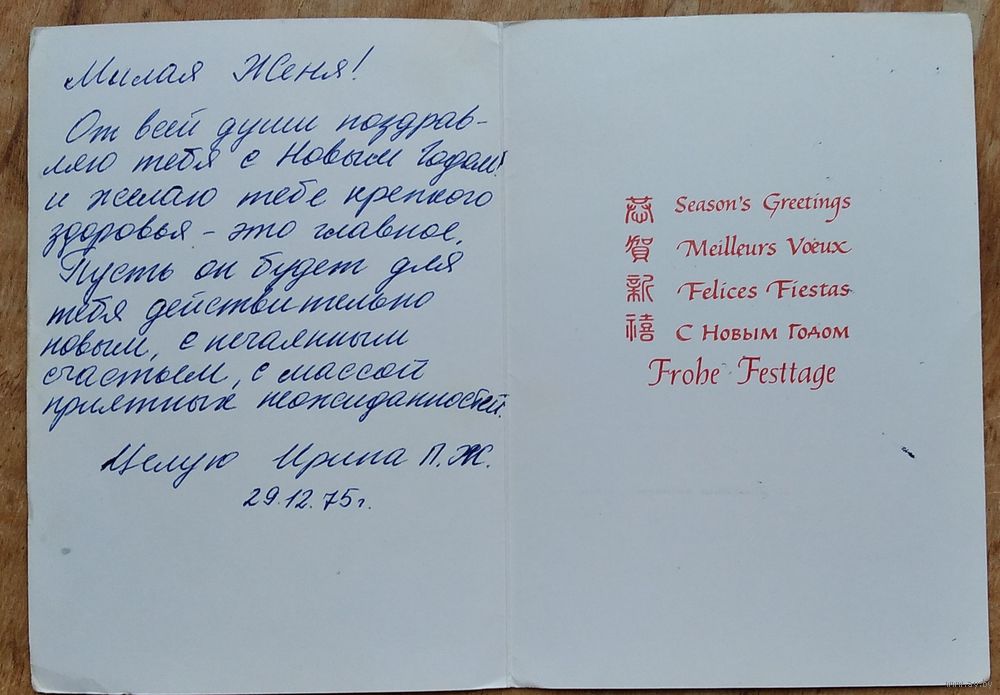 Милая Женя!
От всей души поздрав-
ляю тебя с Новым Годом!
и желаю тебе крепкого
здоровья – это главное.
Пусть он будет для
тебя действительно
новым, с нечаянным
счастьем, с массой
приятных неожиданностей.
Целую Ирина П.Ж.
29.12.75г.
恭 Season's Greetings
賀 Meilleurs Voeux
新 Felices Fiestas
禧 С Новым Годом
Frohe Festtage